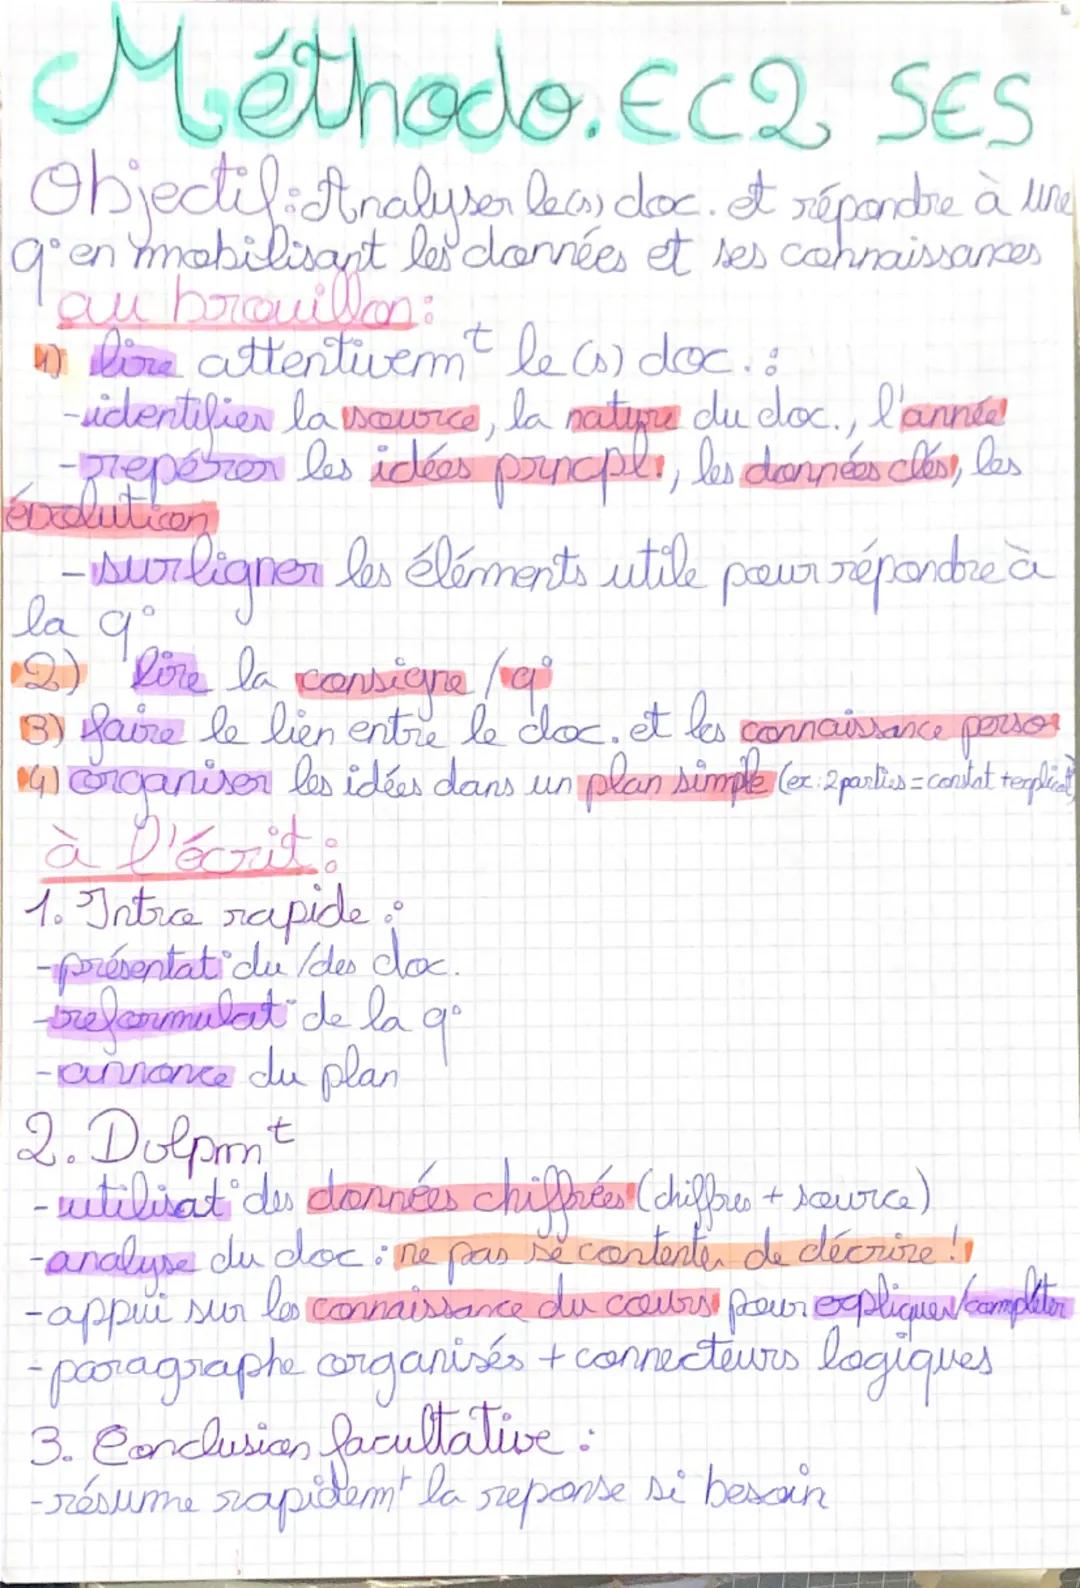 Méthodo. EC2 SES
Objectif : Analyser le(s) doc. et répondre à une
q° en mobilisant les données et ses connaissances
au brouillon :
1) lire attentivemt le(s) doc. :
- identifier la source, la nature du doc., l'année
- repérer les idées princpl., les données clés, les
évolution
- surligner les éléments utile pour répondre à
la q°
2) lire la consigne / q°
3) faire le lien entre le doc. et les connaissance perso
4) organiser les idées dans un plan simple (ex : 2 parties = constat + explicat°)
à l'écrit :
1. Intro rapide :
- présentat° du / des doc.
- reformulat° de la q°
- annonce du plan
2. Dvlpmt
- utilisat° des données chiffrées (chiffres + source)
- analyse du doc : ne pas se contenter de décrire !
- appui sur les connaissance du cours pour expliquer/compléter
- paragraphe organisés + connecteurs logiques
3. Conclusion facultative :
- résume rapidemt la reponse si besoin